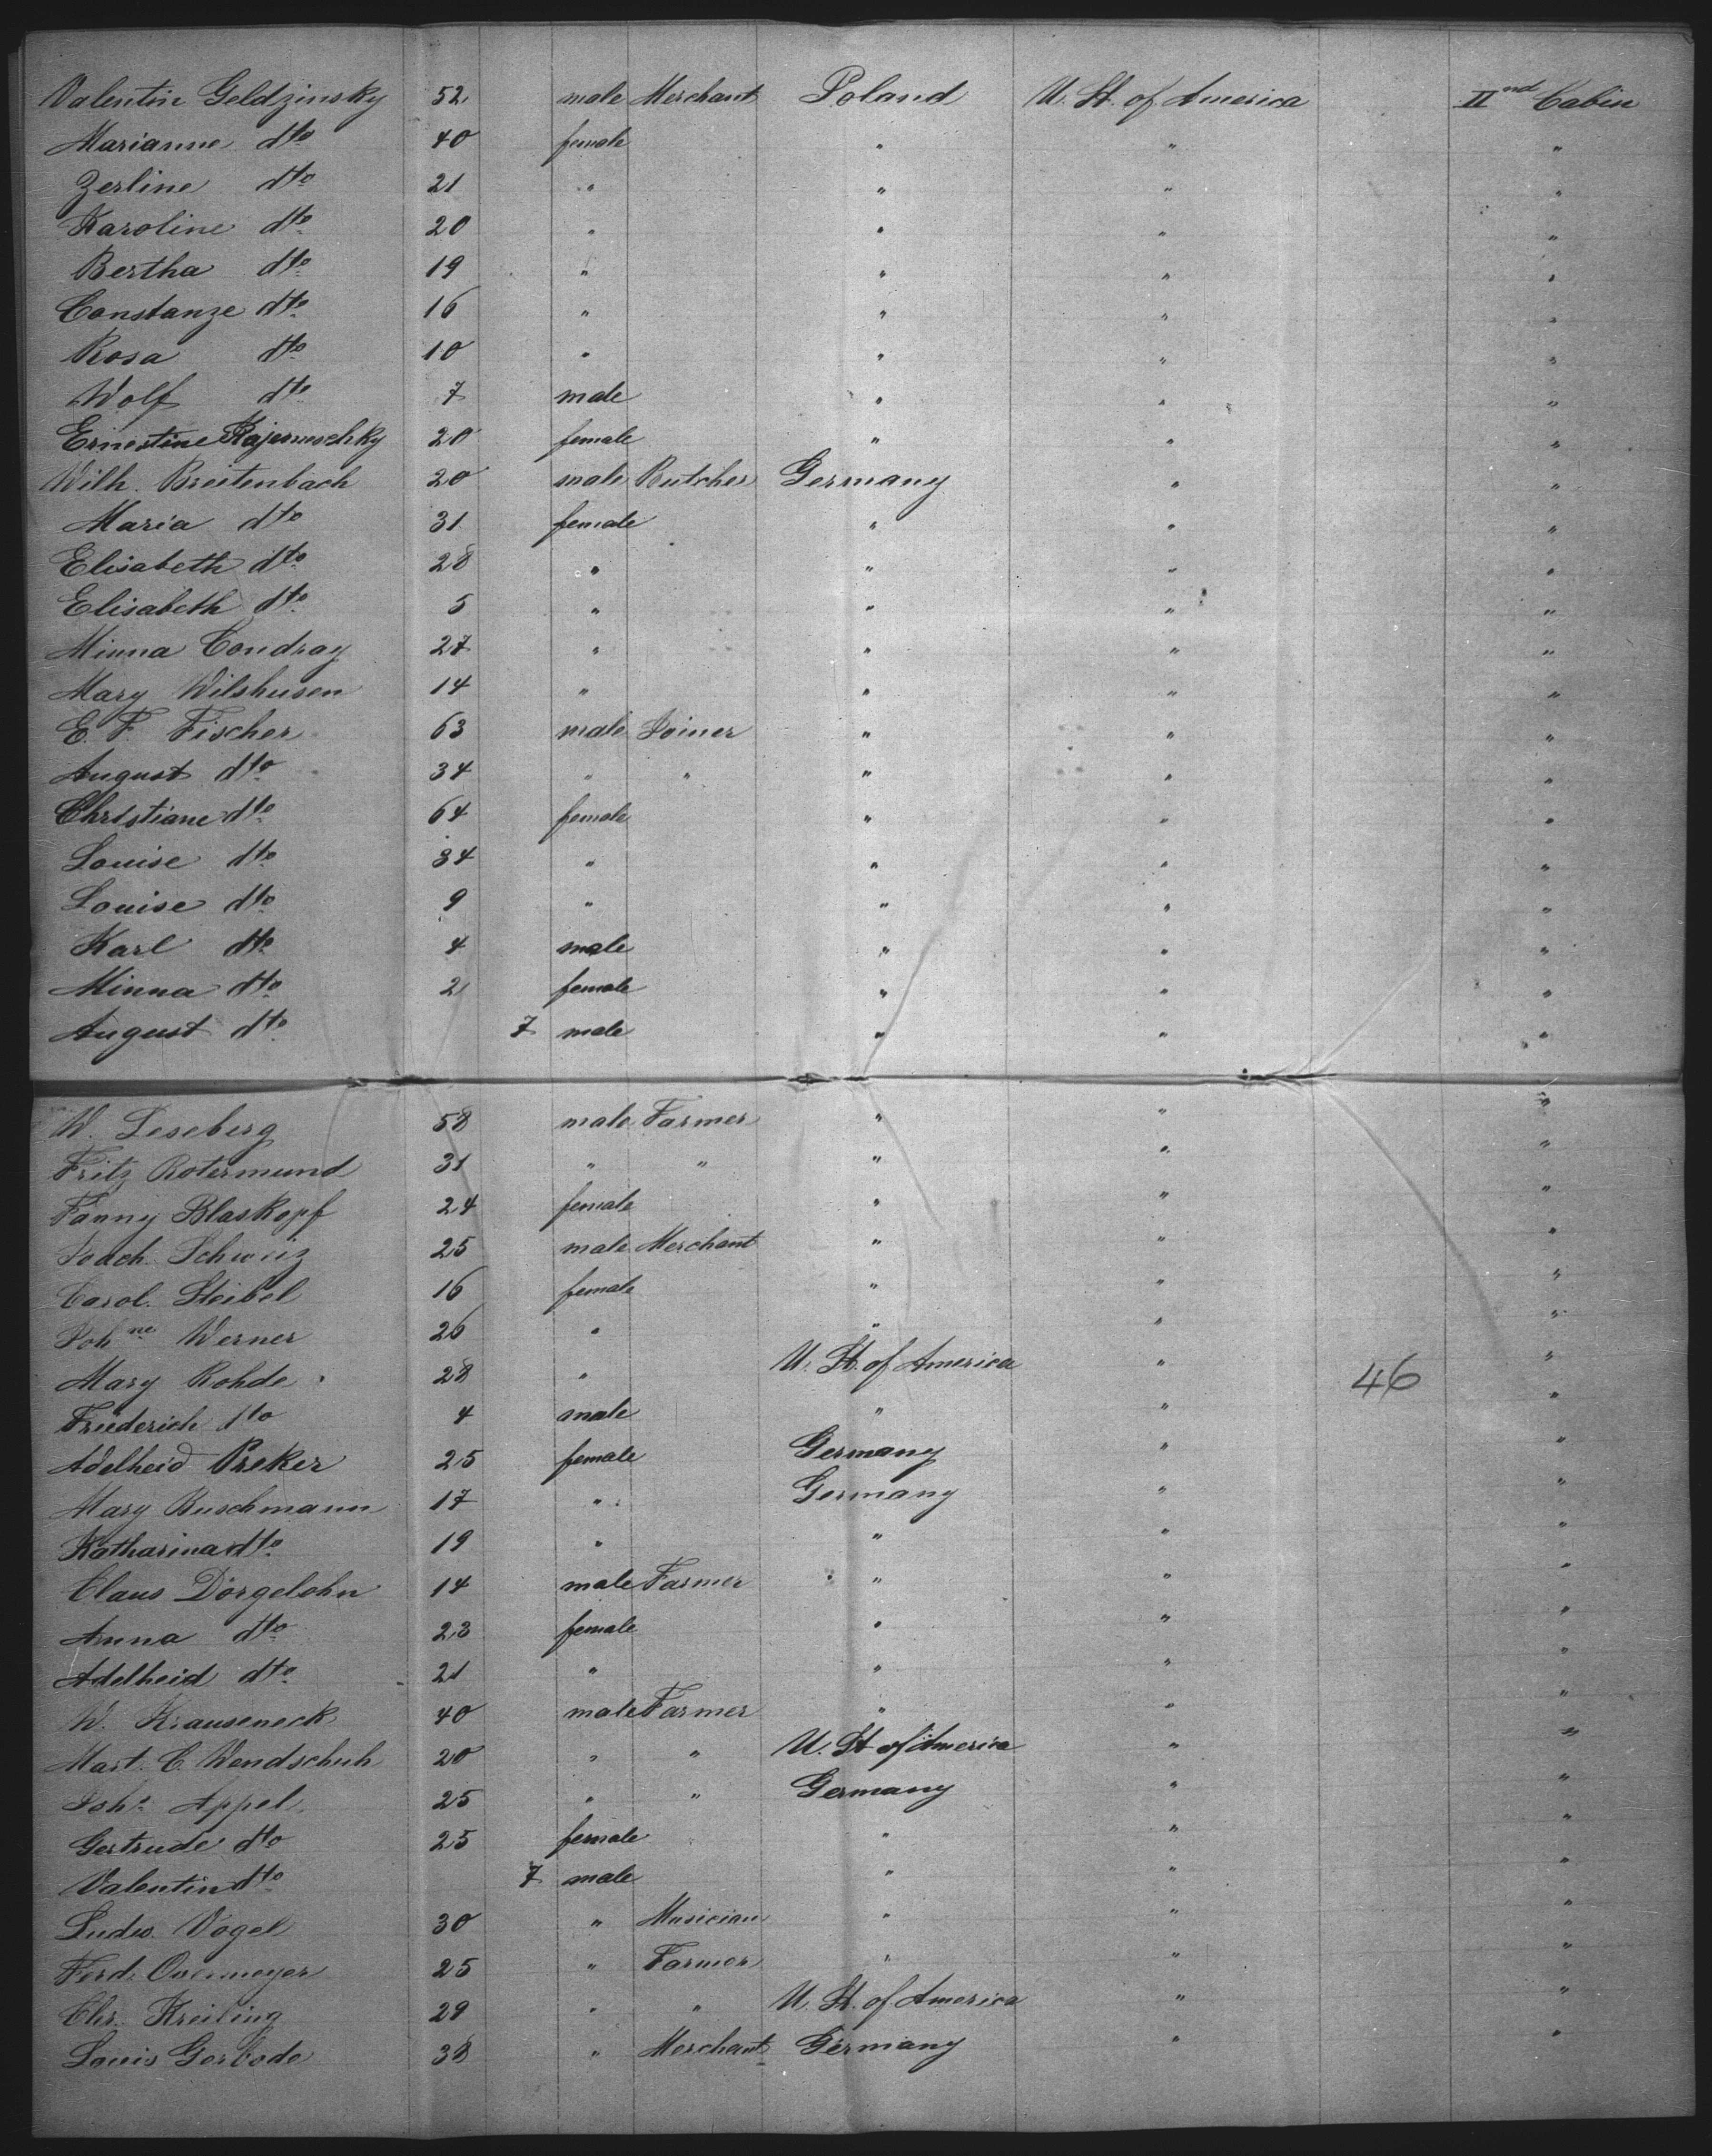 Valentin Geldzinsky 52 male Merchant Poland U. St. of America IInd Cabin
Marianne dto 40 female " " "
Zerline dto 21 " " " "
Karoline dto 20 " " " "
Bertha dto 19 " " " "
Constanze dto 16 " " " "
Rosa dto 10 " " " "
Wolf dto 7 male " " "
Ernestine 20 female " " "
Wilh. Breitenbach 20 male Butcher Germany " "
Maria dto 31 female " " "
Elisabeth dto 28 " " " "
Elisabeth dto 5 " " " "
Minna Condray 27 " " " "
Mary Wilshusen 14 " " " "
E. F. Fischer 63 male Joiner " " "
August dto 34 " " " " "
Christiane dto 64 female " " "
Louise dto 34 " " " "
Louise dto 9 " " " "
Karl dto 4 male " " "
Minna dto 2 female " " "
August dto 7 male " " "
W. Leseberg 58 male Farmer " " "
Fritz Rotermund 31 " " " " "
Fanny Blaskopf 24 female " " "
Joach. 25 male Merchant " " "
Carol. Steibel 16 female " " "
Johne Werner 26 " " " "
Mary Rohde 28 " U. St. of America " 46 "
Friederich dto 4 male " " "
Adelheid Preker 25 female Germany " "
Mary Buschmann 17 " Germany " "
Katharina dto 19 " " " "
Claus Dörgelohn 14 male Farmer " " "
Anna dto 23 female " " "
Adelheid dto 21 " " " "
W. Krauseneck 40 male Farmer " " "
Mart. C. Wendschuh 20 " " U. St. of America " "
Johs Appel 25 " " Germany " "
Gertrude dto 25 female " " "
Valentin dto 7 male " " "
Ludw. Vogel 30 " Musician " " "
Ferd. 25 " Farmer " " "
Chr. Kreiling 29 " " U. St. of America " "
Louis Gerbode 38 " Merchant Germany " "